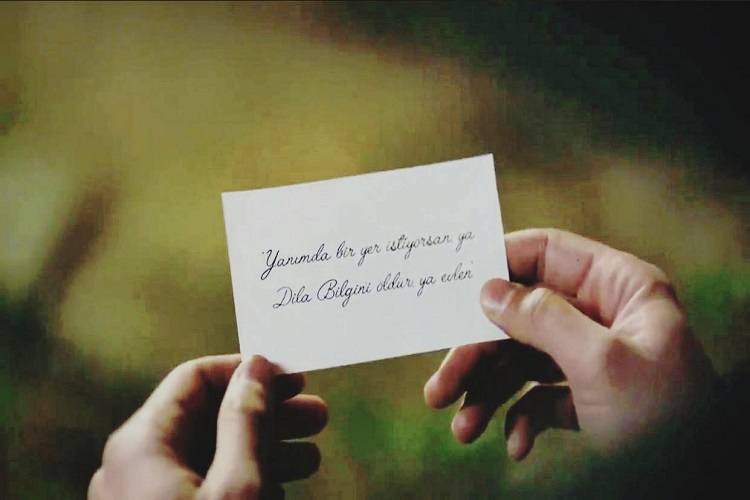 "Yanımda bir yer istiyorsan, ya
Dila Bilgini öldür, ya evlen"